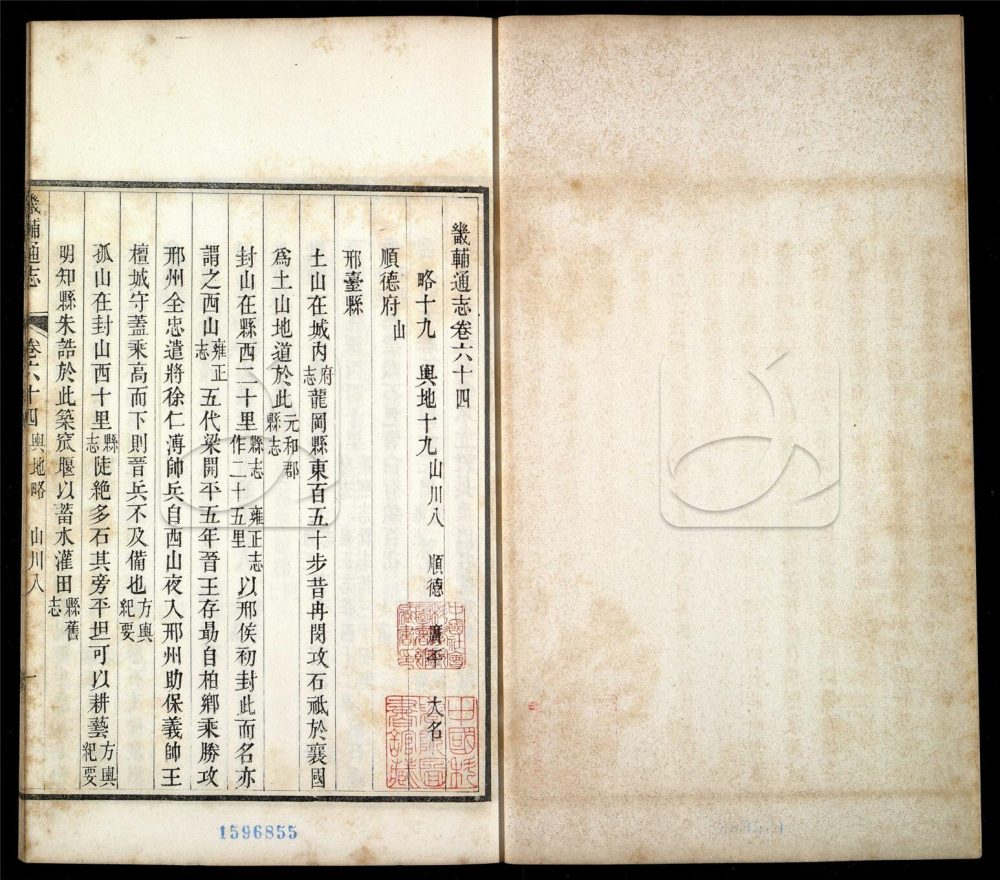 畿輔通志卷六十四
略十九　輿地十九 山川八　順德　廣平　大名
順德府 山
邢臺縣
土山在城內 府志 龍岡縣東百五十步昔冉閔攻石祗於襄國
爲土山地道於此 元和郡縣志
封山在縣西二十里 縣志 雍正志作二十五里 以邢侯初封此而名亦
謂之西山 雍正志 五代梁開平五年晉王存勗自柏鄉乘勝攻
邢州全忠遣將徐仁溥帥兵自西山夜入邢州助保義帥王
檀城守蓋乘高而下則晉兵不及備也 方輿紀要
孤山在封山西十里 縣志 陡絶多石其旁平坦可以耕藝 方輿紀要
明知縣朱誥於此築 堰以蓄水灌田 縣舊志
畿輔通志　卷六十四 輿地略　山川八　一
1596855